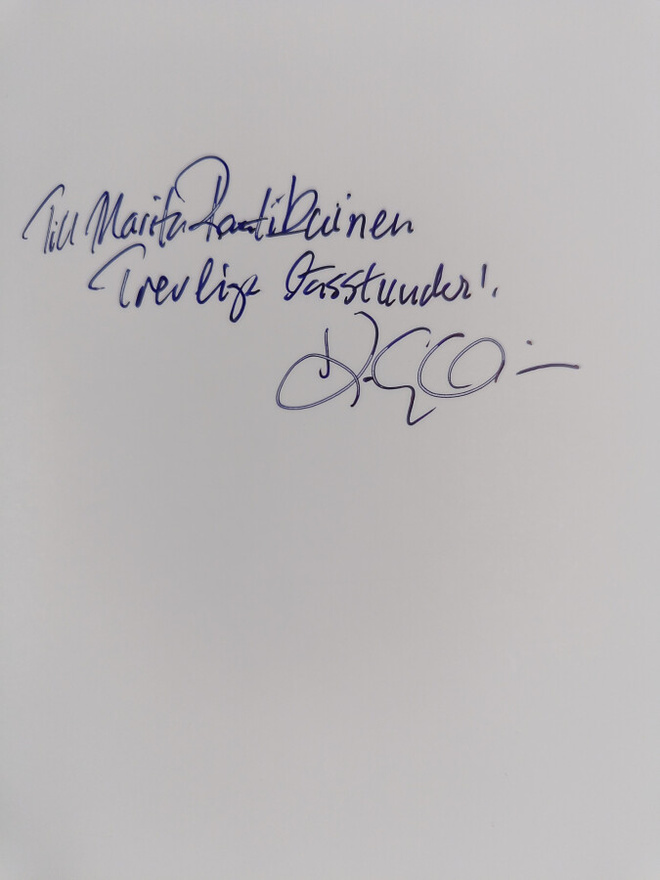 Till Marita Rautikainen
Trevliga lässtunder!